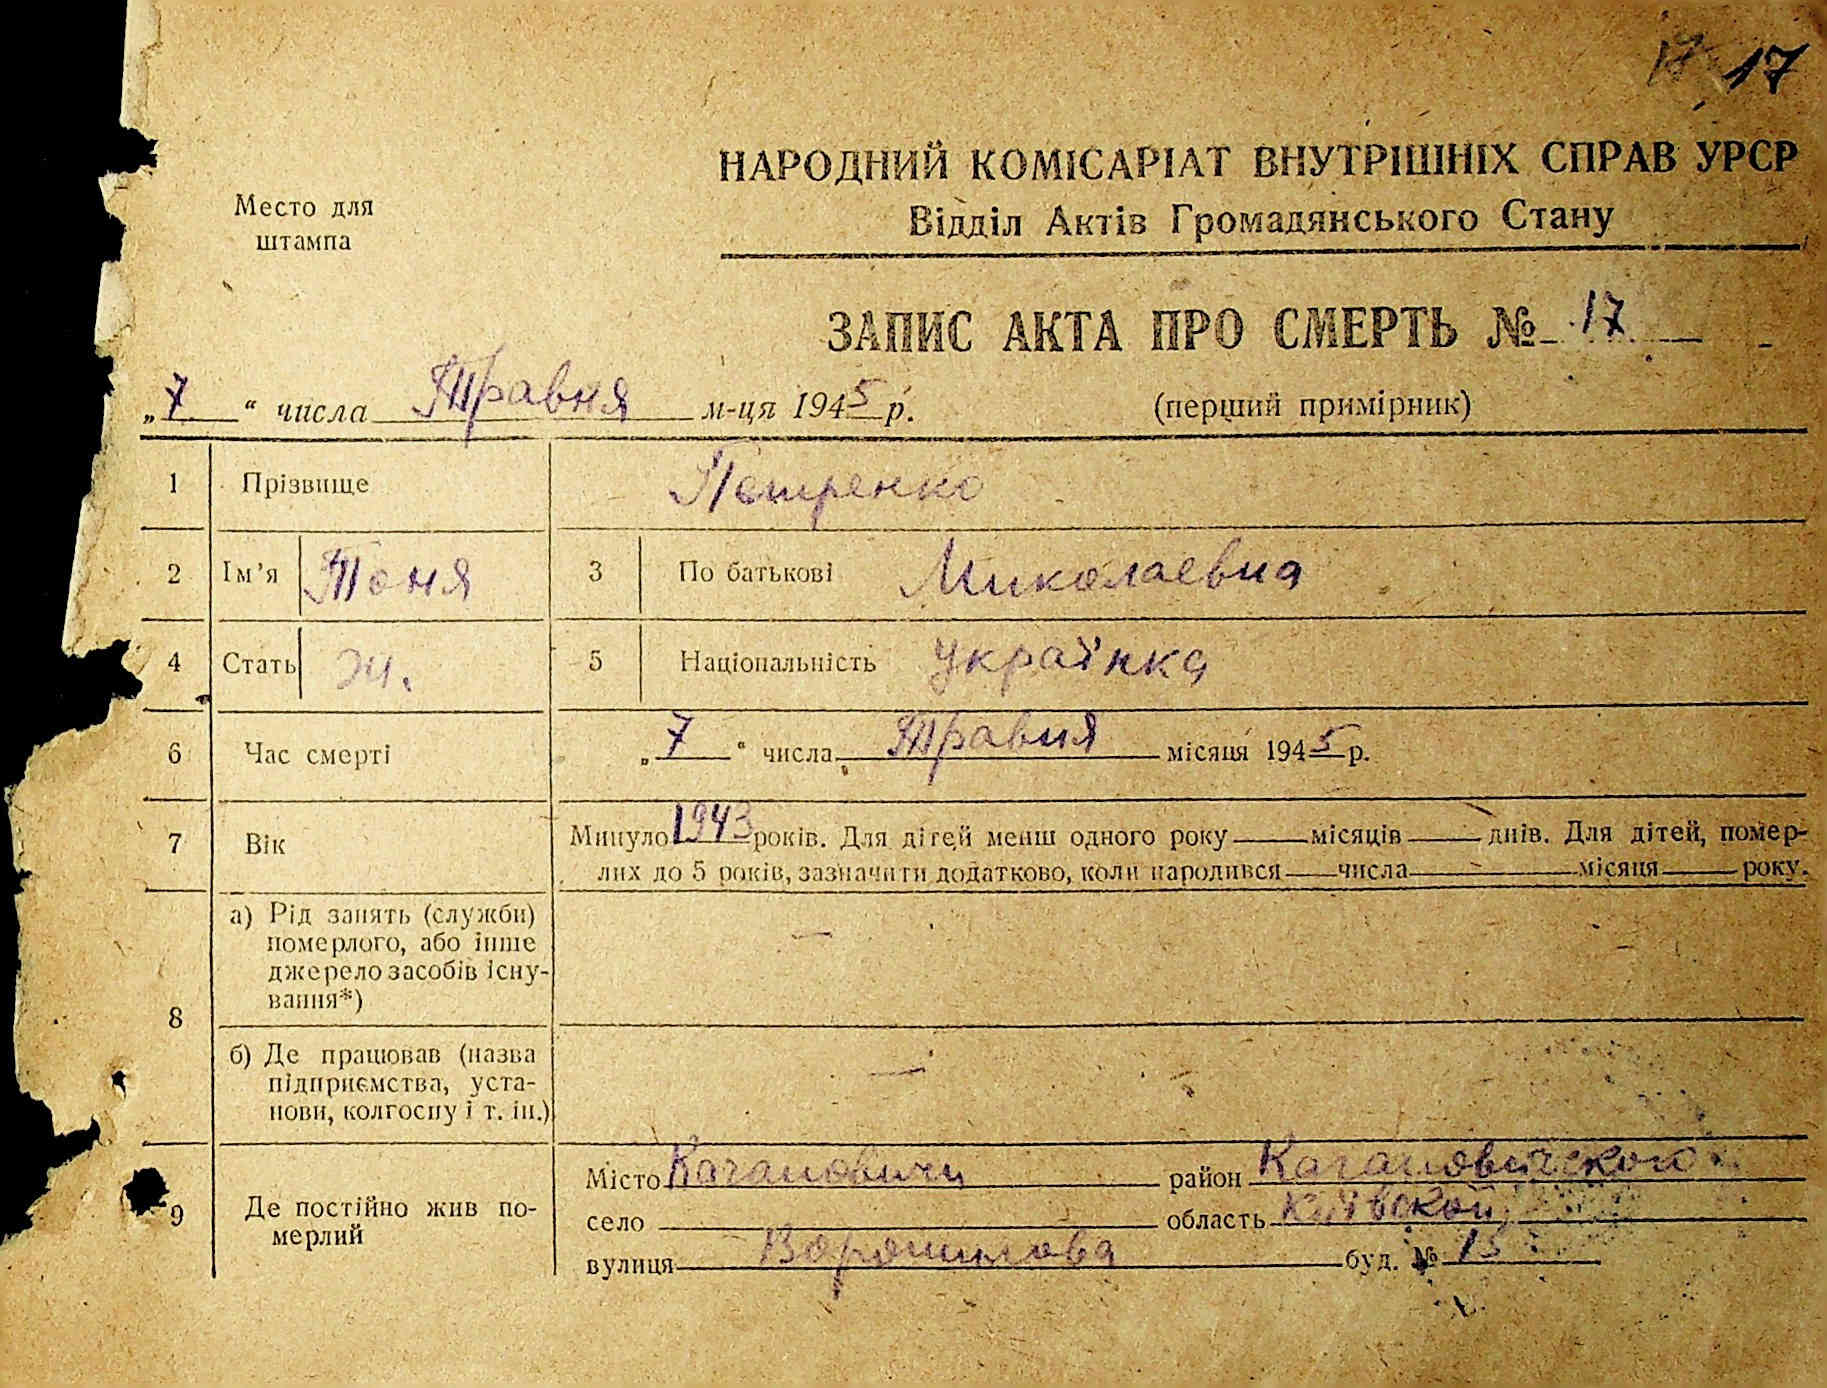 17 17
НАРОДНИЙ КОМІСАРІАТ ВНУТРІШНІХ СПРАВ УРСР
Место для
штампа
Відділ Актів Громадянського Стану
ЗАПИС АКТА ПРО СМЕРТЬ № 17
„7“ числа Травня м-ця 1945 р.
(перший примірник)
1 Прізвище Петренко
2 Ім’я Тоня 3 По батькові Миколаевна
4 Стать ж. 5 Національність Українка
6 Час смерті „7“ числа Травня місяця 1945 р.
7 Вік Минуло 1943 років. Для дітей менш одного року — місяців — днів. Для дітей, помер-
лих до 5 років, зазначити додатково, коли народився — числа — місяця — року.
8 а) Рід занять (служби)
померлого, або інше
джерело засобів існу-
вання*) —
б) Де працював (назва
підприємства, уста-
нови, колгоспу і т. ін.) —
9 Де постійно жив по-
мерлий
Місто Кагановичи район Кагановичского
село область Київской
вулиця Ворошилова буд. № 15